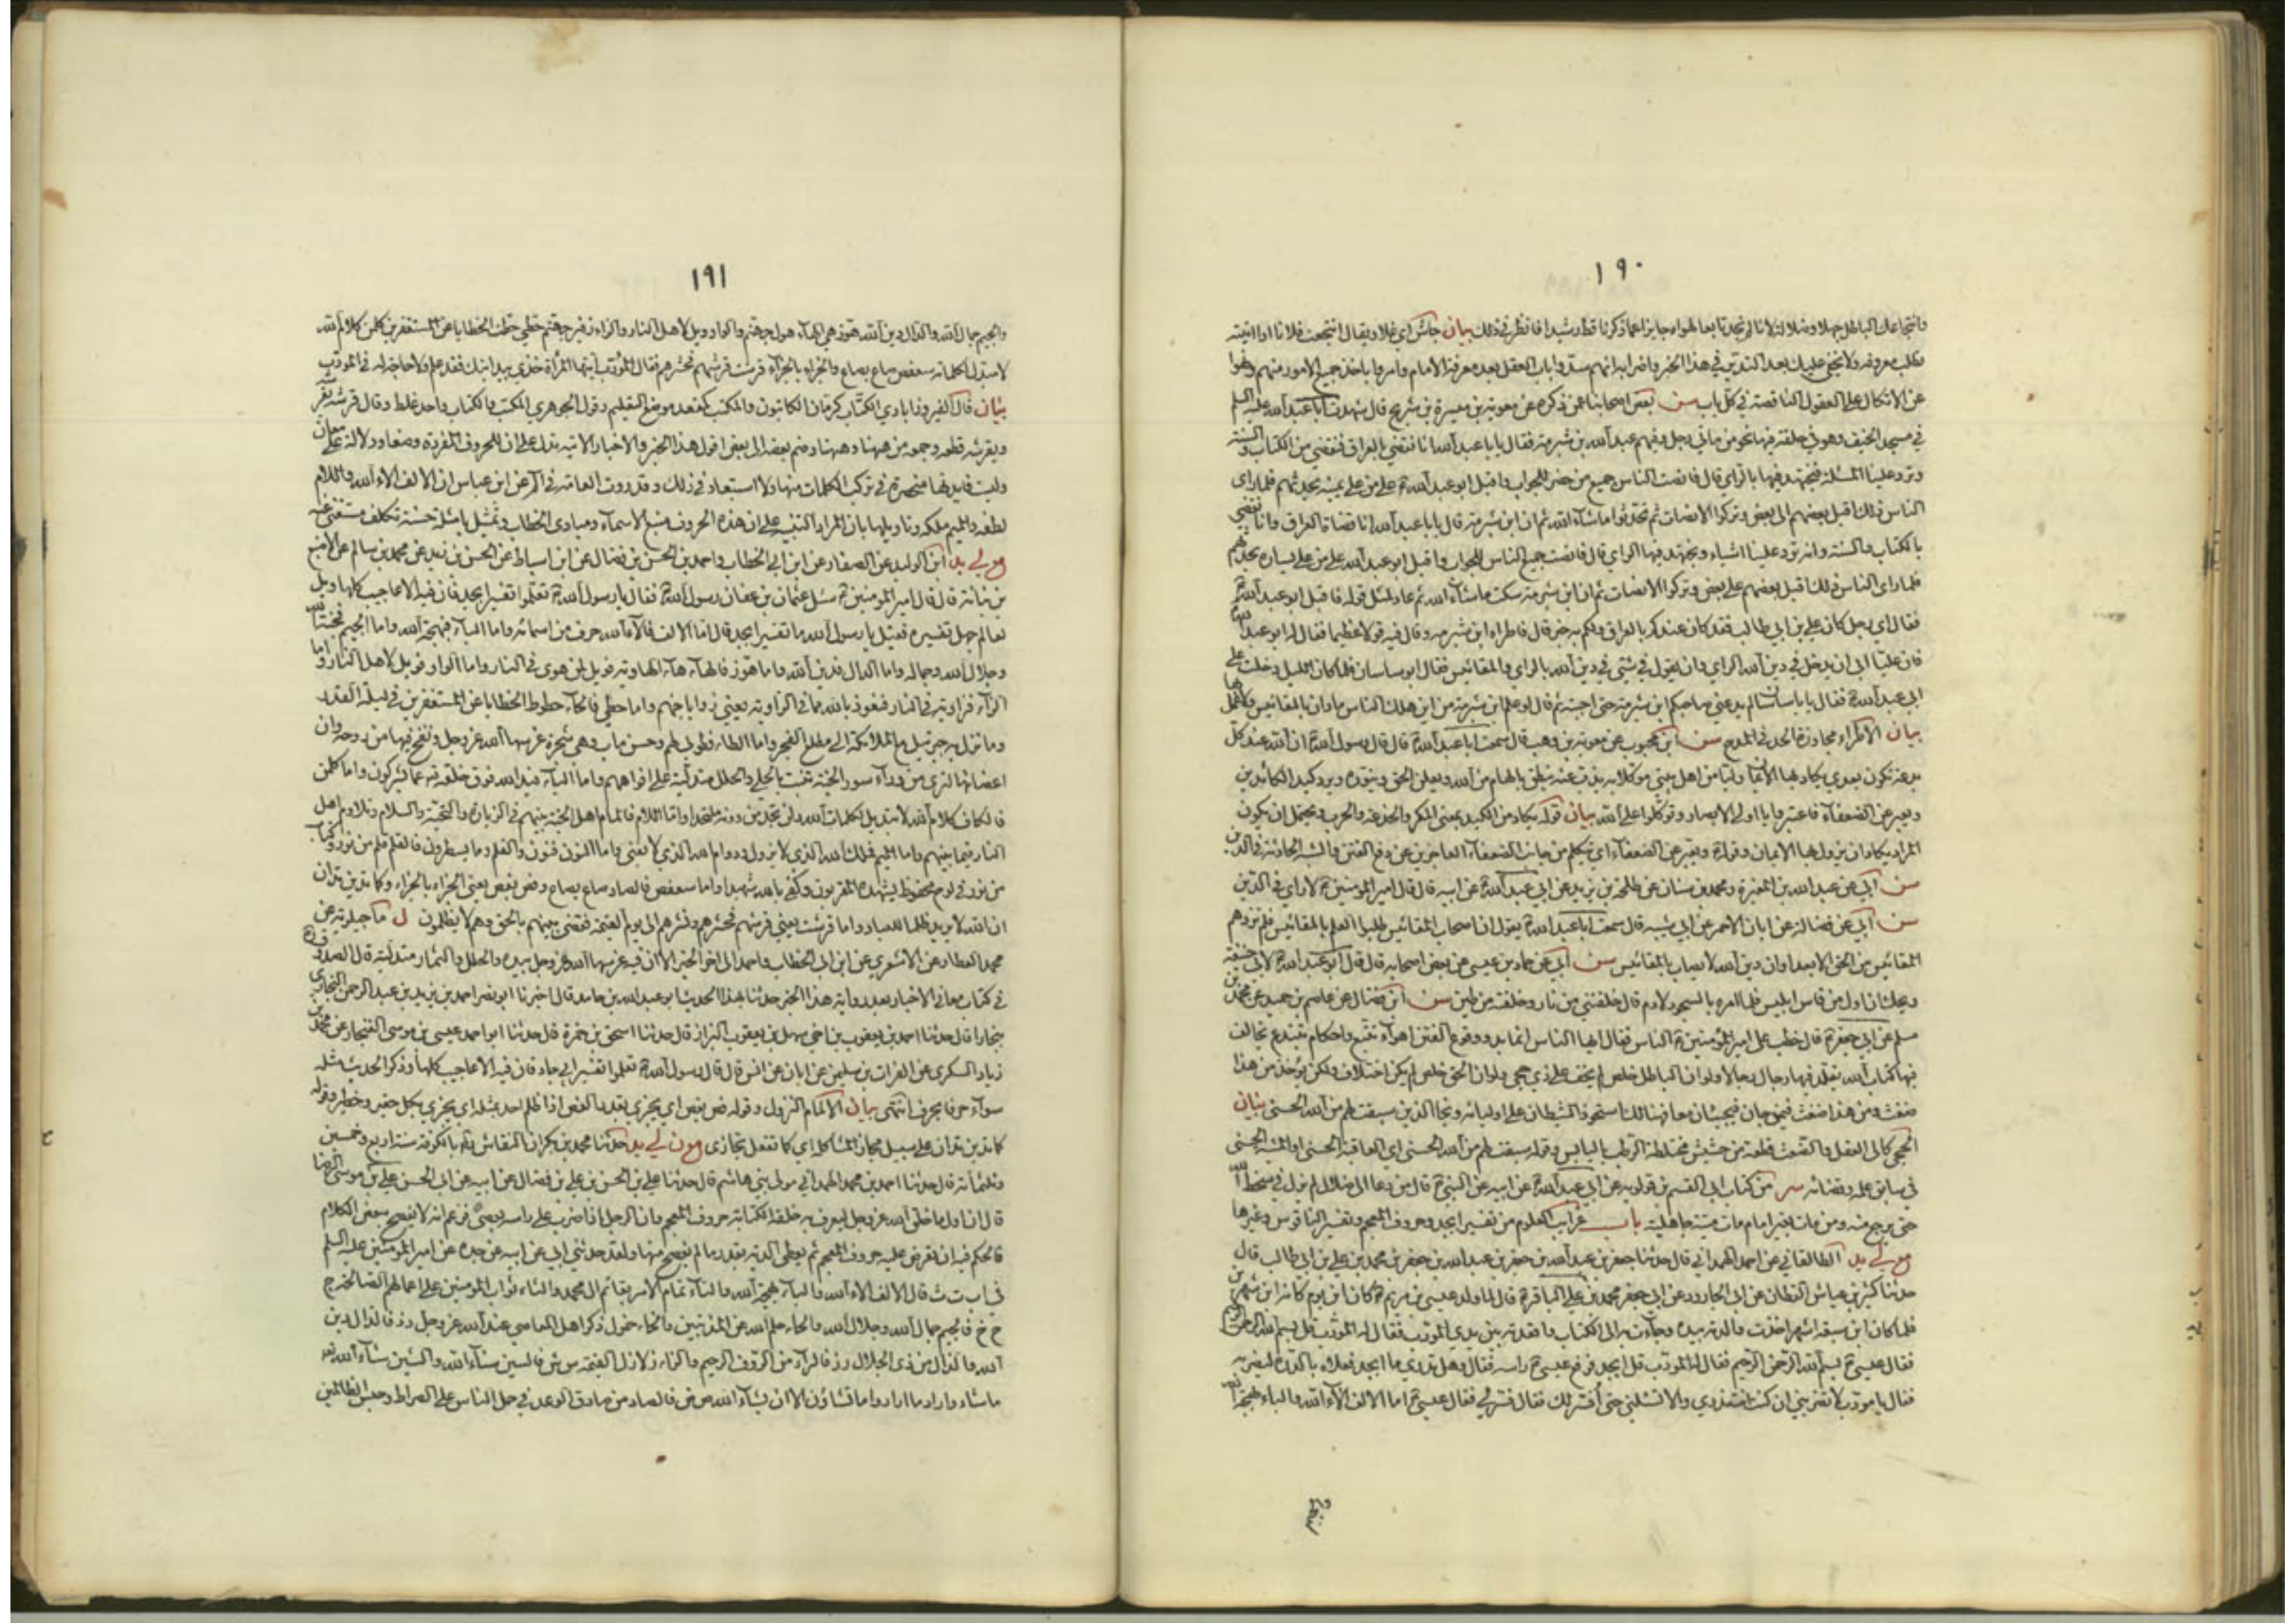 ١٩٠
وانتجاعك الباطل جهلا وضلالة لانا لم نجد تابعا لهواه جايزا عما ذكرنا قط رشيدا فانظر في ذلك بيان جاش اي غلا ويقال انتجعت فلانا اذا اتيته
تطلب معروفه ولا يخفى عليك بعد التدبر في هذا الخبر واضرابه انهم سدوا باب العقل بعد معرفة الامام وامروا باخذ جميع الامور منهم ونهوا
عن الاتكال على العقول الناقصة في كل باب سن بعض اصحابنا عمن ذكره عن معوية بن ميسرة بن شريح قال شهدت ابا عبد الله عليه السلم
في مسجد الخيف وهو في حلقة فيها نحو من مائتي رجل وفيهم عبد الله بن شبرمة فقال يا با عبد الله انا نقضي بالعراق فنقضي من الكتاب والسنة
وترد علينا المسئلة فنجتهد فيها بالراي قال فانصت الناس جميع من حضر للجواب واقبل ابو عبد الله ع على من على يمينه يحدثهم فلما راى
الناس ذلك اقبل بعضهم الى بعض وتركوا الانصات ثم تحدثوا ما شاء الله ثم ان ابن شبرمة قال يا با عبد الله انا قضاة العراق وانا نقضي
بالكتاب والسنة وانه ترد علينا اشياء ونجتهد فيها الراي قال فانصت جميع الناس للجواب واقبل ابو عبد الله على من على يساره يحدثهم
فلما راى الناس ذلك اقبل بعضهم على بعض وتركوا الانصات ثم ان ابن شبرمة سكت ما شاء الله ثم عاد لمثل قوله فاقبل ابو عبد الله ع
فقال اي رجل كان علي بن ابي طالب فقد كان عندكم بالعراق ولكم به خبر قال فاطراه ابن شبرمة وقال فيه قولا عظيما فقال له ابو عبد الله ع
فان عليا ابى ان يدخل في دين الله الراي وان يقول في شيء في دين الله بالراي والمقائيس فقال ابو ساسان فلما كان الليل دخلت على
ابي عبد الله ع فقال يا با ساسان لم يدعني صاحبكم ابن شبرمة حتى اجبته ثم قال لو علم ابن شبرمة من اين هلك الناس ما دان بالمقائيس ولا عمل بها
بيان الاطراء مجاوزة الحد في المدح سن ابن محبوب عن معوية بن وهب قال سمعت ابا عبد الله ع قال قال رسول الله ص ان لله عند كل
بدعة تكون بعدي يكاد بها الايمان وليا من اهل بيتي موكلا به يذب عنه ينطق بالهام من الله ويعلن الحق وينوره ويرد كيد الكائدين
ويعبر عن الضعفاء فاعتبروا يا اولي الابصار وتوكلوا على الله بيان قوله يكاد من الكيد بمعنى المكر والخدعة والحرب ويحتمل ان يكون
المراد يكاد ان يزول بها الايمان وقوله ويعبر عن الضعفاء اي يتكلم من جانب الضعفاء العاجزين عن دفع الفتن والشبه الحادثة في الدين
سن ابي عن عبد الله بن المغيرة ومحمد بن سنان عن طلحة بن زيد عن ابي عبد الله ع عن ابيه قال قال امير المؤمنين ع لا راي في الدين
سن ابي عن فضالة عن ابان الاحمر عن ابي شيبه قال سمعت ابا عبد الله ع يقول ان اصحاب المقائيس طلبوا العلم بالمقائيس فلم تزدهم
المقائيس من الحق الا بعدا وان دين الله لا يصاب بالمقائيس سن ابي عن حماد بن عيسى عن بعض اصحابه قال قال ابو عبد الله ع لابي حنيفة
ويحك ان اول من قاس ابليس فلما امره بالسجود لادم قال خلقتني من نار وخلقته من طين سن ابن فضال عن عاصم بن حميد عن محمد بن
مسلم عن ابي جعفر ع قال خطب علي امير المؤمنين ع الناس فقال ايها الناس انما بدو وقوع الفتن اهواء تتبع واحكام تبتدع يخالف
فيها كتاب الله يقلد فيها رجال رجالا ولو ان الباطل خلص لم يخف على ذي حجى ولو ان الحق خلص لم يكن اختلاف ولكن يؤخذ من هذا
ضغث ومن هذا ضغث فيمزجان فيجيئان معا فهنالك استحوذ الشيطان على اوليائه ونجا الذين سبقت لهم من الله الحسنى بيان
الحجى كالى العقل والضغث قطعة من حشيش مختلطة الرطب باليابس وقوله سبقت لهم من الله الحسنى اي العاقبة الحسنى او المشية الحسنى
في سابق علمه وقضائه سر من كتاب ابي القسم بن قولويه عن ابي عبد الله ع عن ابيه عن النبي ص قال من دعا الى ضلال لم يزل في سخط الله
حتى يرجع منه ومن مات بغير امام مات ميتة جاهلية باب غرايب العلوم من تفسير ابجد وحروف المعجم وتفسير الناقوس وغيرها
مع لي يد الطالقاني عن احمد الهمداني قال حدثنا جعفر بن عبد الله بن جعفر بن عبد الله بن جعفر بن محمد بن علي بن ابي طالب قال
حدثنا كثير بن عياش القطان عن ابي الجارود عن ابي جعفر محمد بن علي الباقر ع قال لما ولد عيسى بن مريم ع كان ابن يوم كانه ابن شهرين
فلما كان ابن سبعة اشهر اخذت والدته بيده وجاءت به الى الكتاب واقعدته بين يدي المؤدب فقال له المؤدب قل بسم الله الرحمن الرحيم
فقال عيسى ع بسم الله الرحمن الرحيم فقال له المؤدب قل ابجد فرفع عيسى ع راسه فقال وهل تدري ما ابجد فعلاه بالدرة ليضربه
فقال يا مؤدب لا تضربني ان كنت تدري والا فسلني حتى افسر لك فقال فسره لي فقال عيسى ع اما الالف الاء الله والباء بهجة الله
١٩١
والجيم جمال الله والدال دين الله هوز هي الهاء هول جهنم والواو ويل لاهل النار والزاء زفير جهنم حطي حطت الخطايا عن المستغفرين كلمن كلام الله
لا مبدل لكلماته سعفص صاع بصاع والجزاء بالجزاء قرشت قرشهم فحشرهم فقال المؤدب ايتها المرأة خذي بيد ابنك فقد علم ولا حاجة له في المؤدب
بيان قال الفيروزابادي الكتاب كرمان الكاتبون والمكتب كمقعد موضع التعليم وقول الجوهري المكتب والكتاب واحد غلط وقال قرشه يقرشه
ويقرشه قطعه وجمعه من ههنا وههنا وضم بعضه الى بعض اقول هذا الخبر والاخبار الاتية تدل على ان للحروف المفردة وضعا ودلالة على معان
وليست فايدتها منحصرة في تركب الكلمات منها ولا استبعاد في ذلك وقد روت العامة في الم عن ابن عباس ان الالف الاء الله واللام
لطفه والميم ملكه وتاويلها بان المراد التنبيه على ان هذه الحروف منبع الاسماء ومبادي الخطاب وتمثيل بامثلة حسنة تكلف مستغنى عنه
مع لي يد ابن الوليد عن الصفار عن ابن ابي الخطاب واحمد بن الحسن بن فضال عن ابن اسباط عن الحسن بن زيد عن محمد بن سالم عن الاصبغ
بن نباتة قال قال امير المؤمنين ع سئل عثمان بن عفان رسول الله ص فقال يا رسول الله ص ما تفسير ابجد فقال رسول الله ص تعلموا تفسير ابجد فان فيه الاعاجيب كلها ويل
لعالم جهل تفسيره فقيل يا رسول الله ما تفسير ابجد قال اما الالف فالاء الله حرف من اسمائه واما الباء فبهجة الله واما الجيم فجنة الله
وجلال الله وجماله واما الدال فدين الله واما هوز فالهاء هاء الهاوية فويل لمن هوى في النار واما الواو فويل لاهل النار واما
الزاء فزاوية في النار فنعوذ بالله مما في الزاوية يعني زوايا جهنم واما حطي فالحاء حطوط الخطايا عن المستغفرين في ليلة القدر
وما نزل به جبرئيل مع الملائكة الى مطلع الفجر واما الطاء فطوبى لهم وحسن ماب وهي شجرة غرسها الله عز وجل ونفخ فيها من روحه وان
اغصانها لترى من وراء سور الجنة تنبت بالحلي والحلل متدلية على افواههم واما الياء فيد الله فوق خلقه سبحانه عما يشركون واما كلمن
فالكاف كلام الله لا تبديل لكلمات الله ولن تجد من دونه ملتحدا واما اللام فالمام اهل الجنة بينهم في الزيارة والتحية والسلام وتلاوم اهل
النار فيما بينهم واما الميم فملك الله الذي لا يزول ودوام الله الذي لا يفنى واما النون فنون والقلم وما يسطرون فالقلم قلم من نور وكتاب
من نور في لوح محفوظ يشهده المقربون وكفى بالله شهيدا واما سعفص فالصاد صاع بصاع وفص بفص يعني الجزاء بالجزاء وكما تدين تدان
ان الله لا يريد ظلما للعباد واما قرشت يعني قرشهم فحشرهم ونشرهم الى يوم القيمة فقضى بينهم بالحق وهم لا يظلمون ل ماجيلويه عن
محمد العطار عن الاشعري عن ابن ابي الخطاب واحمد الى اخر الخبر الا ان فيه غرسها الله عز وجل بيده والحلل والثمار متدلية قال الصدوق ره
في كتاب معاني الاخبار بعد رواية هذا الخبر حدثنا بهذا الحديث ابو عبد الله بن حامد قال اخبرنا ابو نصر احمد بن يزيد بن عبد الرحمن البخاري
ببخارا قال حدثنا احمد بن يعقوب بن اخي سهل بن يعقوب البزاز قال حدثنا اسحق بن حمزة قال حدثنا ابو احمد عيسى بن موسى الغنجار عن محمد بن
زياد السكري عن الفرات بن سليمن عن ابان عن انس قال قال رسول الله ص تعلموا تفسير ابي جاد فان فيه الاعاجيب كلها وذكر الحديث مثله
سواء حرفا بحرف انتهى بيان الالمام النزول وقوله فص بفص اي يجزى بقدر الفص اذا ظلم احد بمثله اي يجزى بكل حقير وخطير وقوله
كما تدين تدان على سبيل مجاز المشاكلة اي كما تفعل تجازى مع ن لي يد حدثنا محمد بن بكران النقاش ره بالكوفة سنة اربع وخمسين
وثلثمائة قال حدثنا احمد بن محمد الهمداني مولى بني هاشم قال حدثنا علي بن الحسن بن علي بن فضال عن ابيه عن ابي الحسن علي بن موسى الرضا
قال ان اول ما خلق الله عز وجل ليعرف به خلقه الكتابة حروف المعجم وان الرجل اذا ضرب على راسه بعصى فزعم انه لا يفصح ببعض الكلام
فالحكم فيه ان يعرض عليه حروف المعجم ثم يعطى الدية بقدر ما لم يفصح منها ولقد حدثني ابي عن ابيه عن جده عن امير المؤمنين عليه السلم
في ا ب ت ث قال الالف الاء الله والباء بهجة الله والتاء تمام الامر بقائم ال محمد والثاء ثواب المؤمنين على اعمالهم الصالحة ج
ح خ فالجيم جمال الله وجلال الله والحاء حلم الله عن المذنبين والخاء خمول ذكر اهل المعاصي عند الله عز وجل د ذ فالدال دين
الله والذال من ذي الجلال ر ز فالراء من الرؤف الرحيم والزاء زلازل القيمة س ش فالسين سناء الله والشين شاء الله
ما شاء واراد ما اراد وما تشاؤن الا ان يشاء الله ص ض فالصاد من صادق الوعد في حمل الناس على الصراط وحبس الظالمين